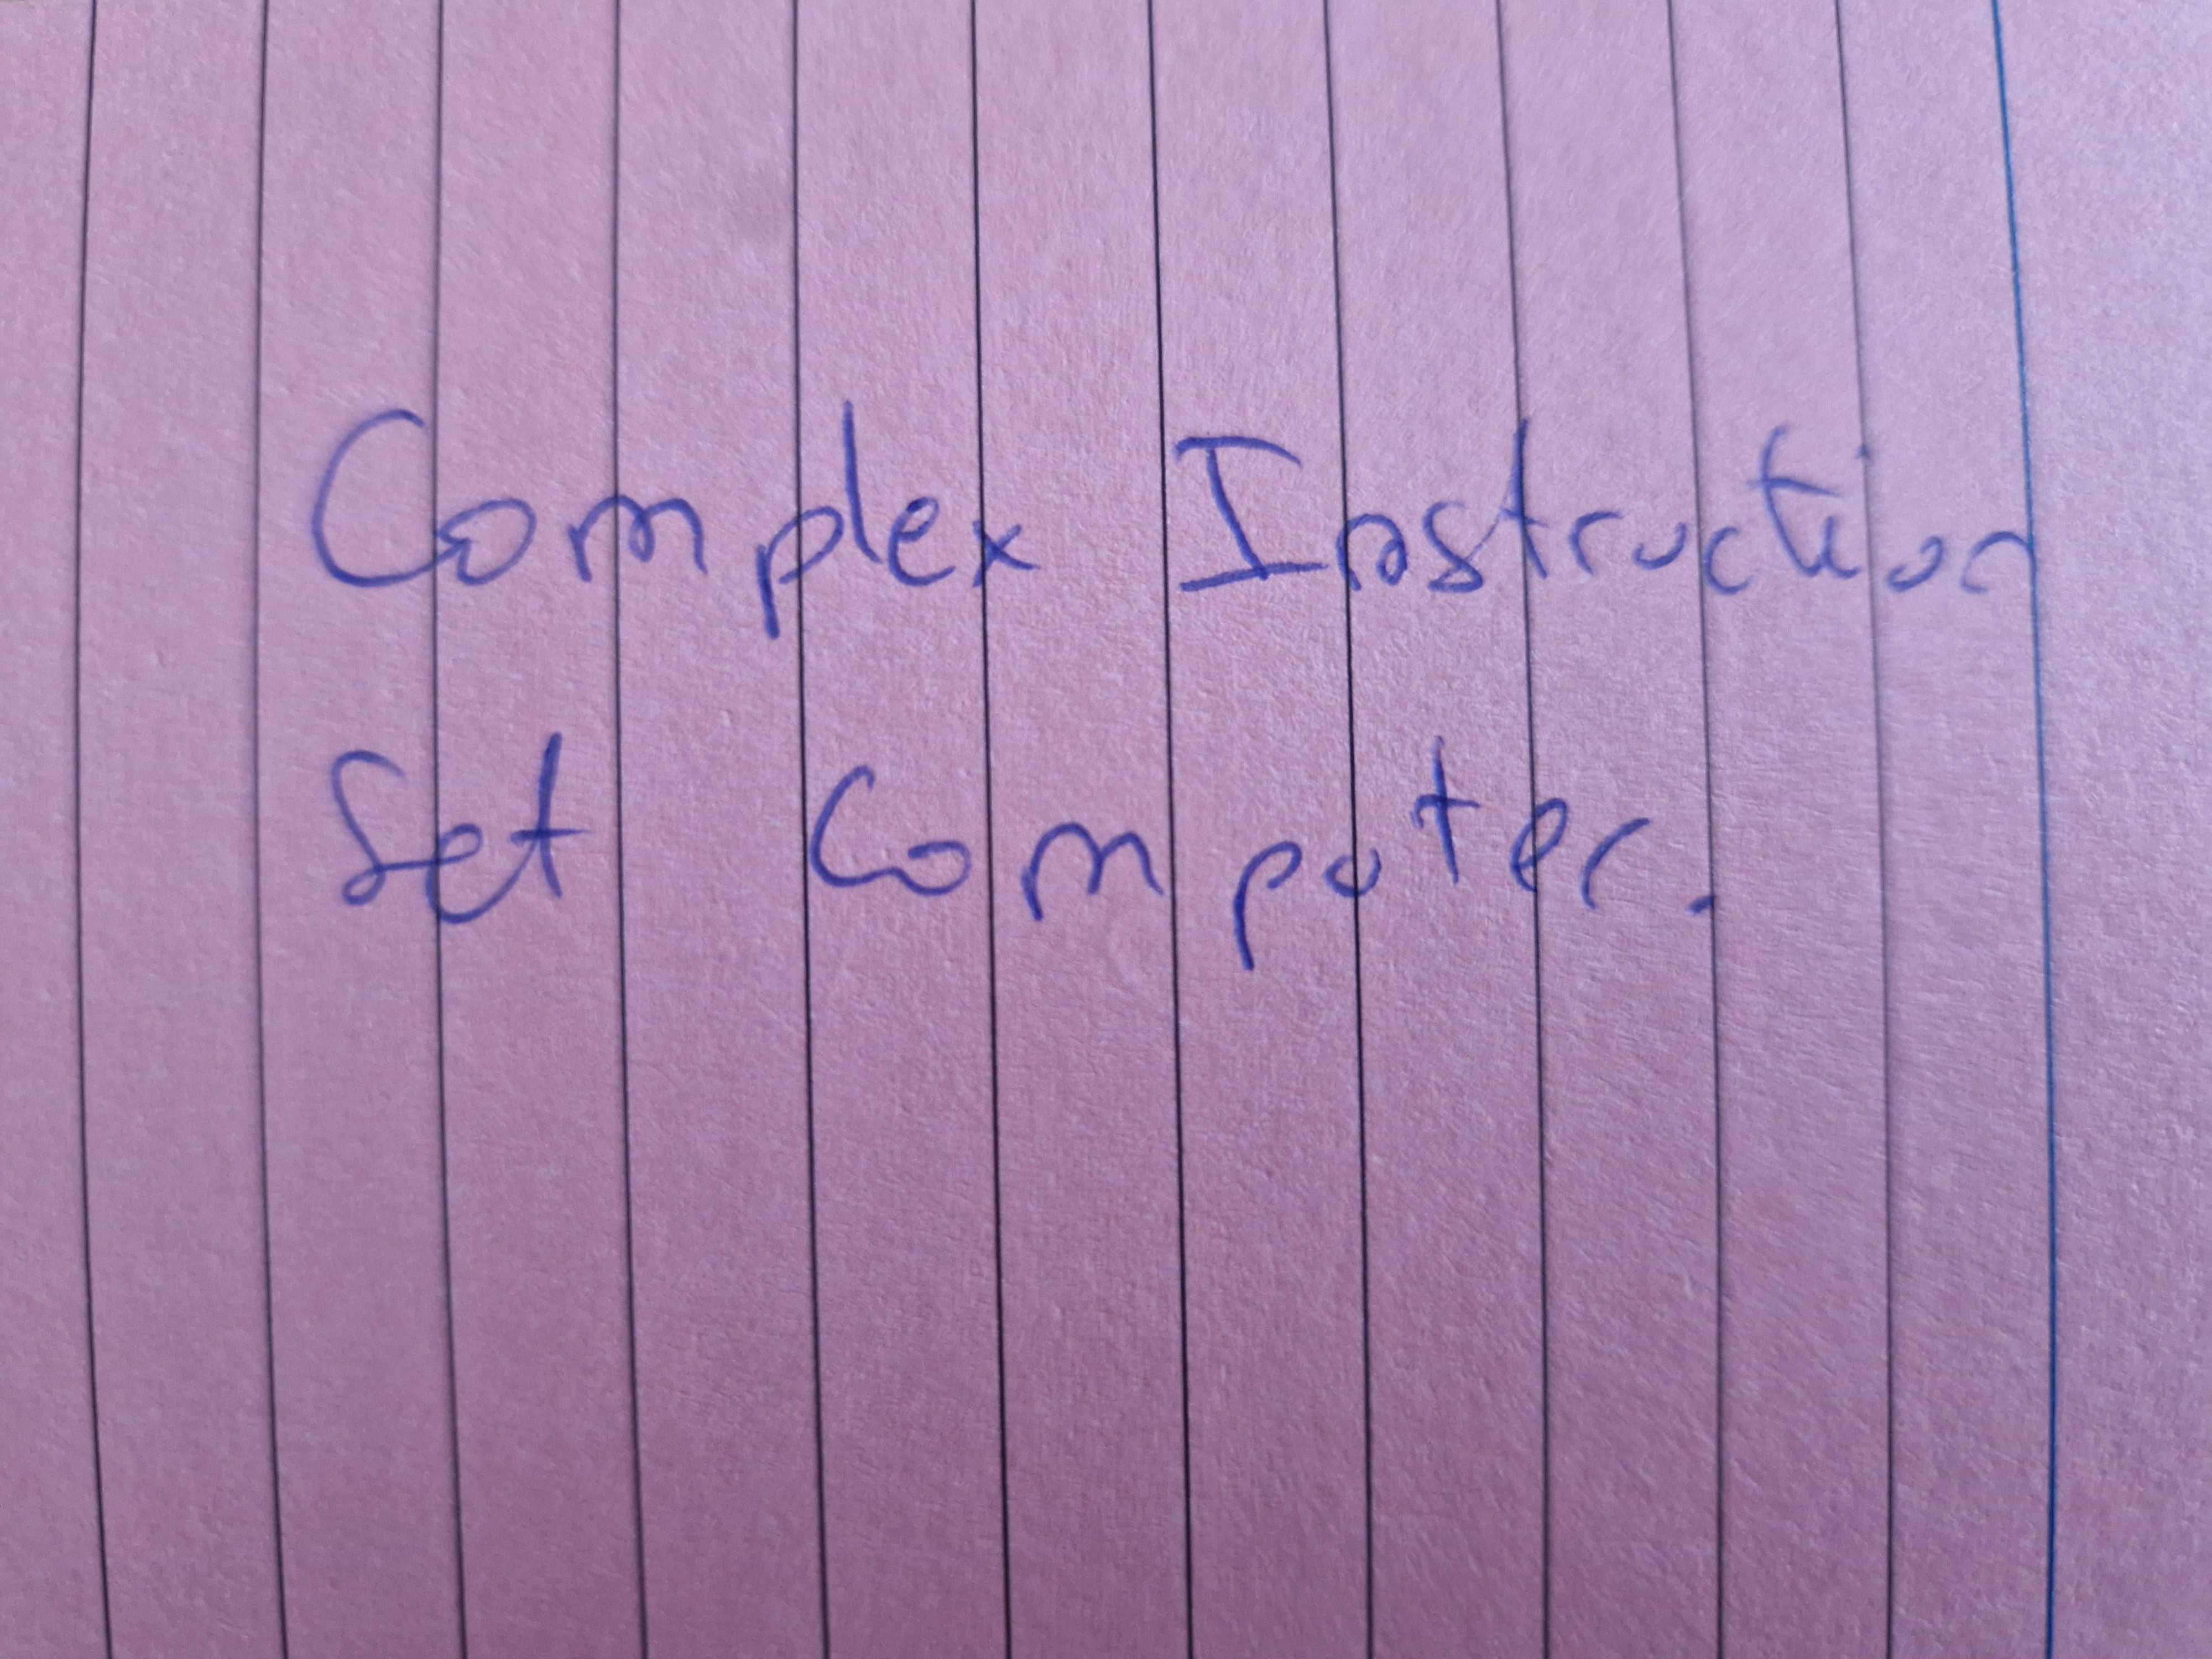 Complex Instruction
Set Computer.